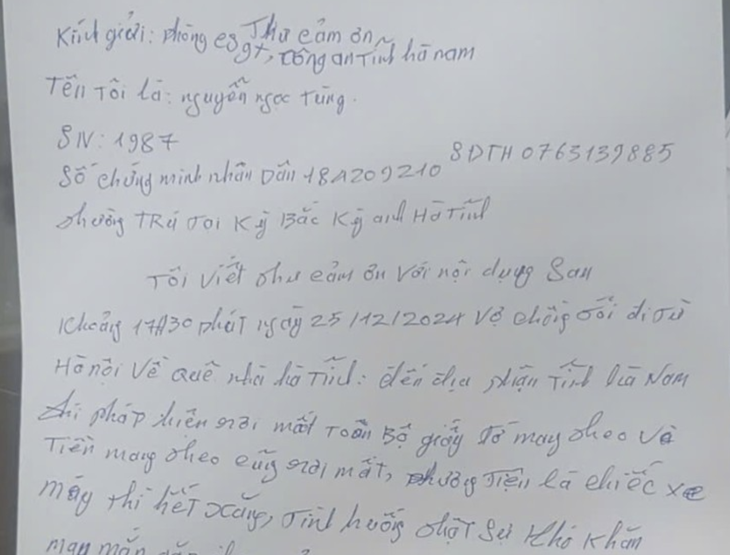 Thư cảm ơn
Kính gửi: phòng csgt, Công an Tỉnh hà nam
Tên Tôi là: nguyễn ngọc Tùng.
SN: 1987
SDTH 0763139885
Số chứng minh nhân Dân 184209210
thường TRú Tại Kỳ Bắc Kỳ anh Hà Tĩnh
Tôi viết thư cảm ơn với nội dung Sau
Khoảng 17h30 phút ngày 25/12/2024 Vợ chồng tôi đi từ
Hà nội về quê nhà hà Tĩnh: đến địa phận Tỉnh Hà Nam
thì pháp hiện rơi mất Toàn Bộ giấy tờ mang theo và
Tiền mang theo cũng rơi mất, phương Tiện là chiếc xe
máy thì hết xăng, tình huống thật sự khó khăn
may mắn